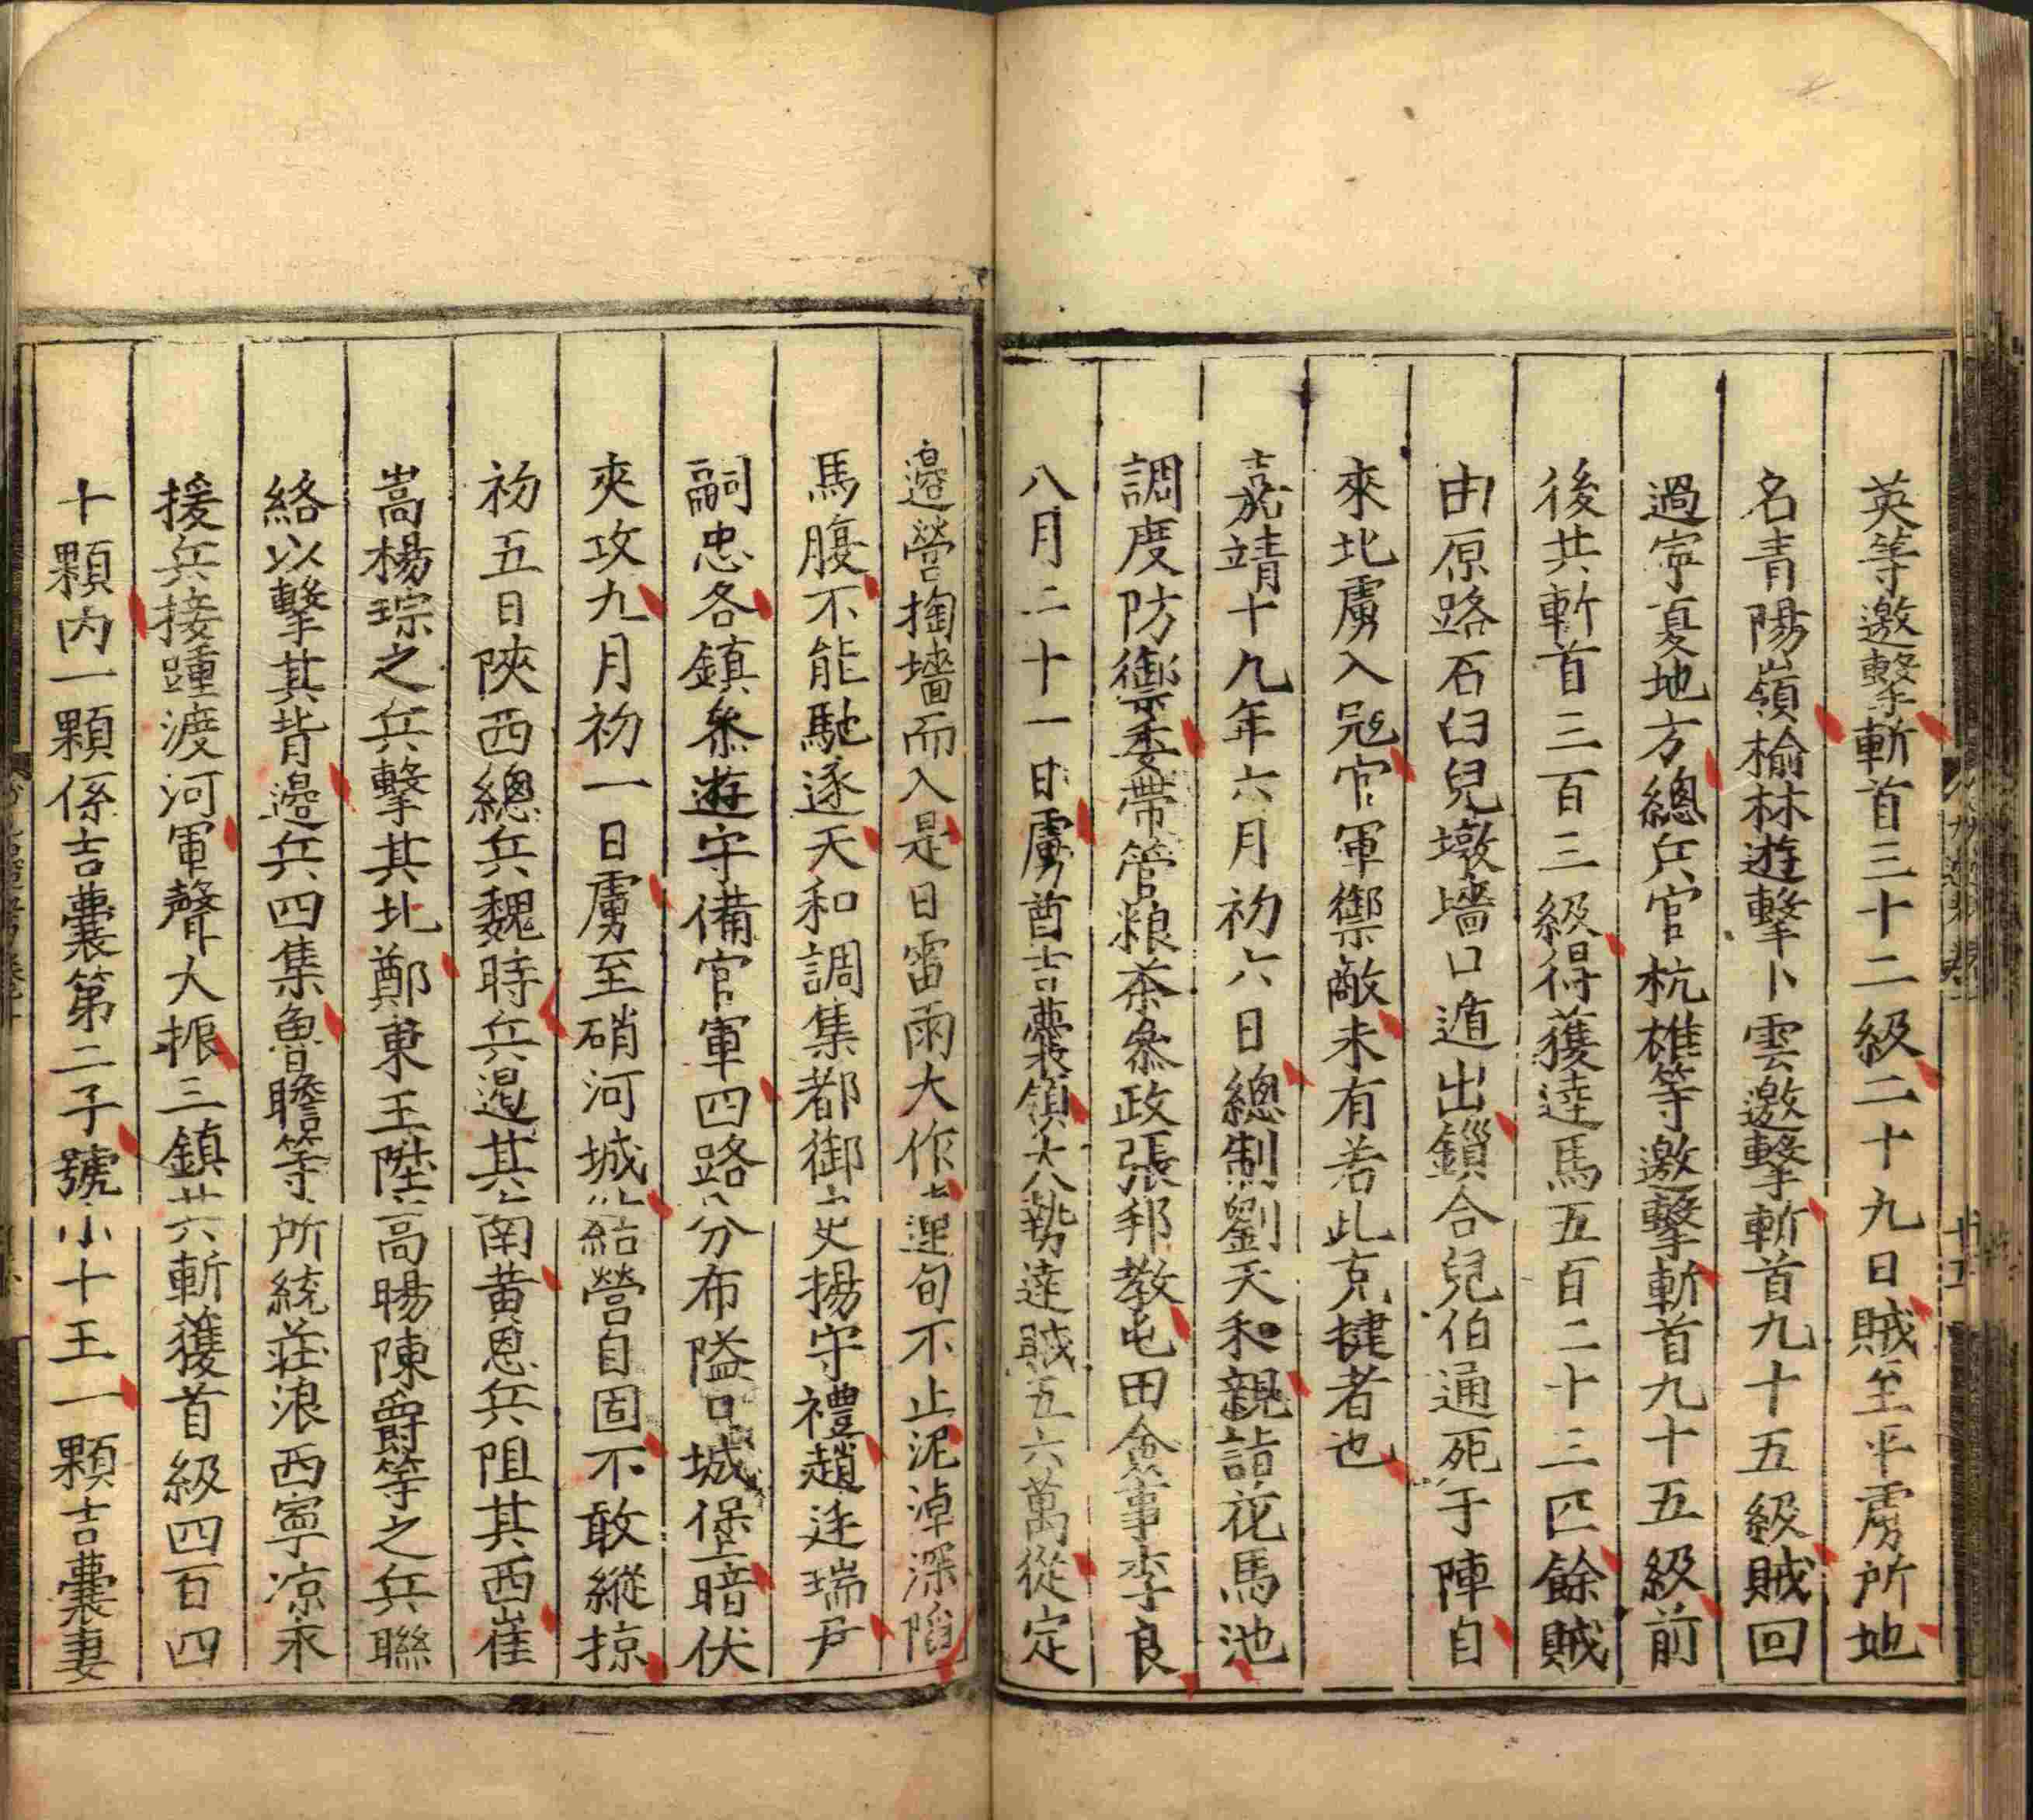 英等邀擊斬首三十二級二十九日賊至平虜所地
名青陽嶺榆林遊擊卜雲邀擊斬首九十五級賊回
過寧夏地方總兵官杭雄等邀擊斬首九十五級前
後共斬首三百三級得獲逹馬五百二十三匹餘賊
由原路石臼兒墩墻口遁出鎻合兒伯通死于陣自
來北虜入冦官軍禦敵未有若此克揵者也
嘉靖十九年六月初六日總制劉天和親詣花馬池
調度防禦委帶管粮茶叅政張邦教屯田僉事李良
八月二十一日虜酋吉囊領大八勢逹賊五六萬從定
邊營掏墻而入是日雷雨大作連旬不止泥淖深陷
馬腹不能馳逐天和調集都御史楊守禮趙廷瑞尹
嗣忠各鎮叅遊守備官軍四路分布隘口城堡暗伏
夾攻九月初一日虜至硝河城結營自固不敢縱掠
初五日陝西總兵魏時兵遏其南黄恩兵阻其西崔
嵩楊琮之兵擊其北鄭東王陞高暘陳爵等之兵聯
絡以擊其背邊兵四集魯瞻等所統莊浪西寧凉永
援兵接踵渡河軍聲大振三鎮共斬獲首級四百四
十顆内一顆係吉囊第二子號小十王一顆吉囊妻